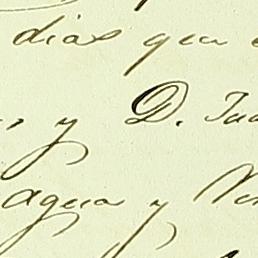 dias que
y D. Jua
agua y Ve